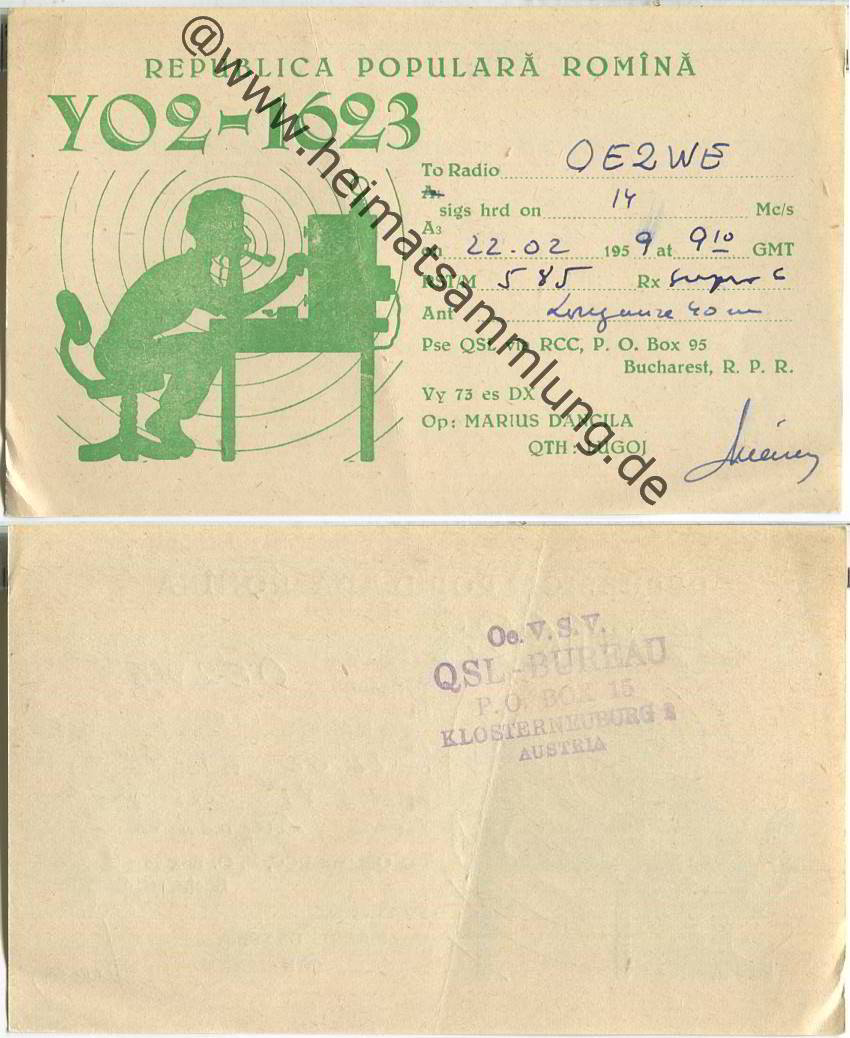 REPUBLICA POPULARĂ ROMÎNĂ
YO2-1623
To Radio OE2WE
A1
sigs hrd on 14 Mc/s
A3
22.02 1959 at 9 10 GMT
RST/M 585 Rx super 6
Ant Longwire 40 m
Pse QSL via RCC, P. O. Box 95
Bucharest, R. P. R.
Vy 73 es DX
Op: MARIUS DANCILA
QTH: LUGOJ
@www.heimatsammlung.de
Oe. V. S. V.
QSL-BUREAU
P. O. BOX 15
KLOSTERNEUBURG 2
AUSTRIA